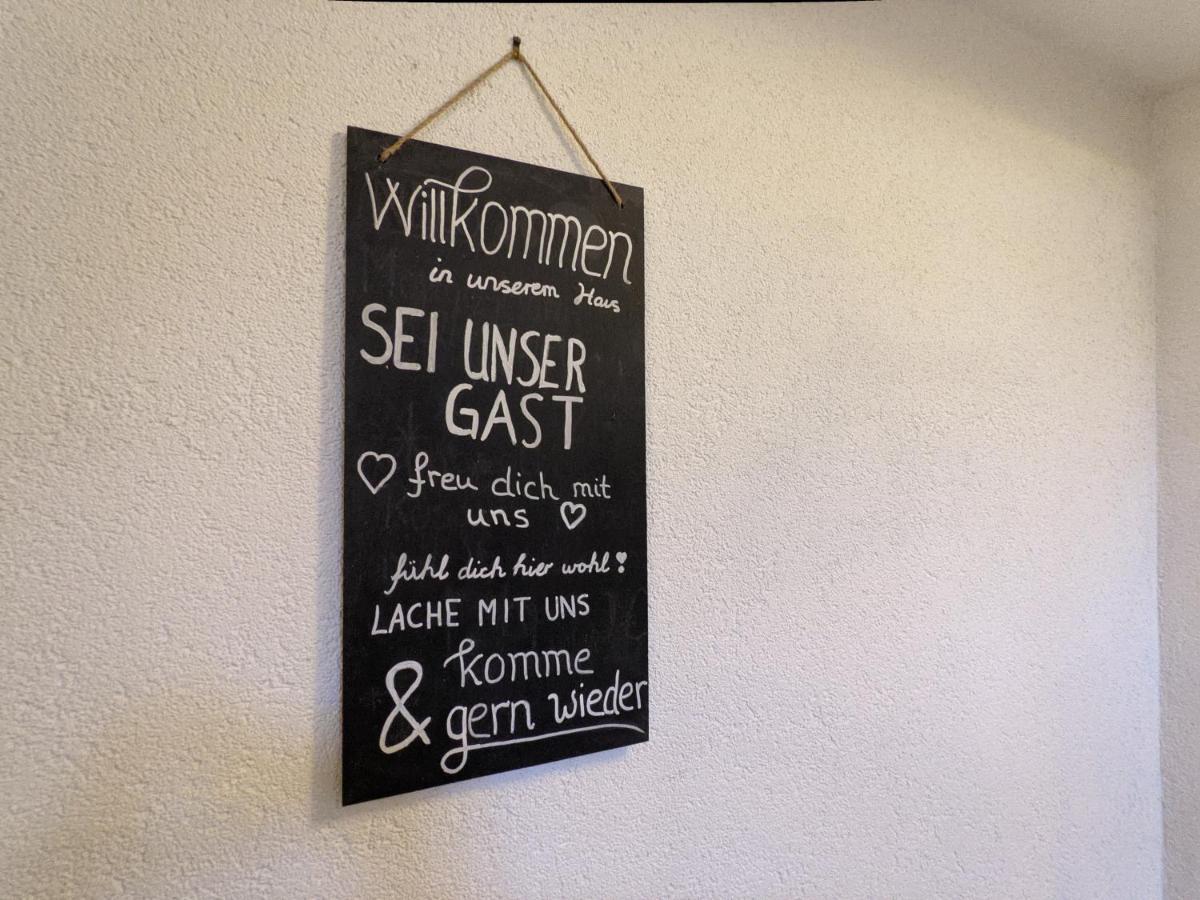 Willkommen
in unserem Haus
SEI UNSER
GAST
♡ freu dich mit
uns ♡
fühl dich hier wohl!
LACHE MIT UNS
& komme
gern wieder